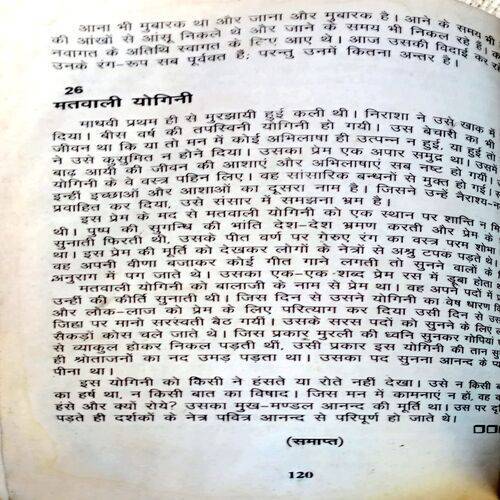 आना भी मुबारक था और जाना और मुबारक है। आने के समय भी
की आंखों से आंसू निकले थे और जाने के समय भी निकल रहे हैं।
नवागत के अतिथि स्वागत के लिए आए थे। आज उसकी विदाई कर
उनके रंग-रूप सब पूर्ववत हैं; परन्तु उनमें कितना अन्तर है।
26
मतवाली योगिनी
माधवी प्रथम ही से मुरझायी हुई कली थी। निराशा ने उसे खाक
दिया। बीस वर्ष की तपस्विनी योगिनी हो गयी। उस बेचारी का भी
जीवन था कि या तो मन में कोई अभिलाषा ही उत्पन्न न हुई, या हुई
ने उसे कुसुमित न होने दिया। उसका प्रेम एक अपार समुद्र था। उसमें
बाढ़ आयी की जीवन की आशाएं और अभिलाषाएं सब नष्ट हो गयी।
योगिनी के वे वस्त्र पहिन लिए। वह सांसारिक बन्धनों से मुक्त हो गई।
इन्हीं इच्छाओं और आशाओं का दूसरा नाम है। जिसने उन्हें नैराश्य
प्रवाहित कर दिया, उसे संसार में समझना भ्रम है।
इस प्रेम के मद से मतवाली योगिनी को एक स्थान पर शान्ति न
थी। पुष्प की सुगन्धि की भांति देश-देश भ्रमण करती और प्रेम के
सुनाती फिरती थी, उसके पीत वर्ण पर गेरुए रंग का वस्त्र परम शोभा
था। इस प्रेम की मूर्ति को देखकर लोगों के नेत्रों से अश्रु टपक पड़ते थे।
वह अपनी वीणा बजाकर कोई गीत गाने लगती तो सुनने वालों के
अनुराग में पग जाते थे। उसका एक-एक शब्द प्रेम रस में डूबा होता
मतवाली योगिनी को बालाजी के नाम से प्रेम था। वह अपने पदों में
उन्हीं की कीर्ति सुनाती थी। जिस दिन से उसने योगिनी का वेष धारण
और लोक-लाज को प्रेम के लिए परित्याग कर दिया उसी दिन से
जिह्वा पर मानो सरस्वती बैठ गयी। उसके सरस पदों को सुनने के लिए
सैकड़ों कोस चले जाते थे। जिस प्रकार मुरली की ध्वनि सुनकर गोपियां
से व्याकुल होकर निकल पड़ती थीं, उसी प्रकार इस योगिनी की तान
ही श्रोताजनों का नद उमड़ पड़ता था। उसका पद सुनना आनन्द के
पीना था।
इस योगिनी को किसी ने हंसते या रोते नहीं देखा। उसे न किसी
का हर्ष था, न किसी बात का विषाद। जिस मन में कामनाएं न हों, वह
हंसे और क्यों रोये? उसका मुख-मण्डल आनन्द की मूर्ति था। उस पर
पड़ते ही दर्शकों के नेत्र पवित्र आनन्द से परिपूर्ण हो जाते थे।
(समाप्त)
120